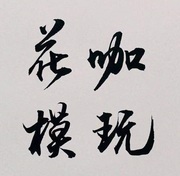 花咖
模玩